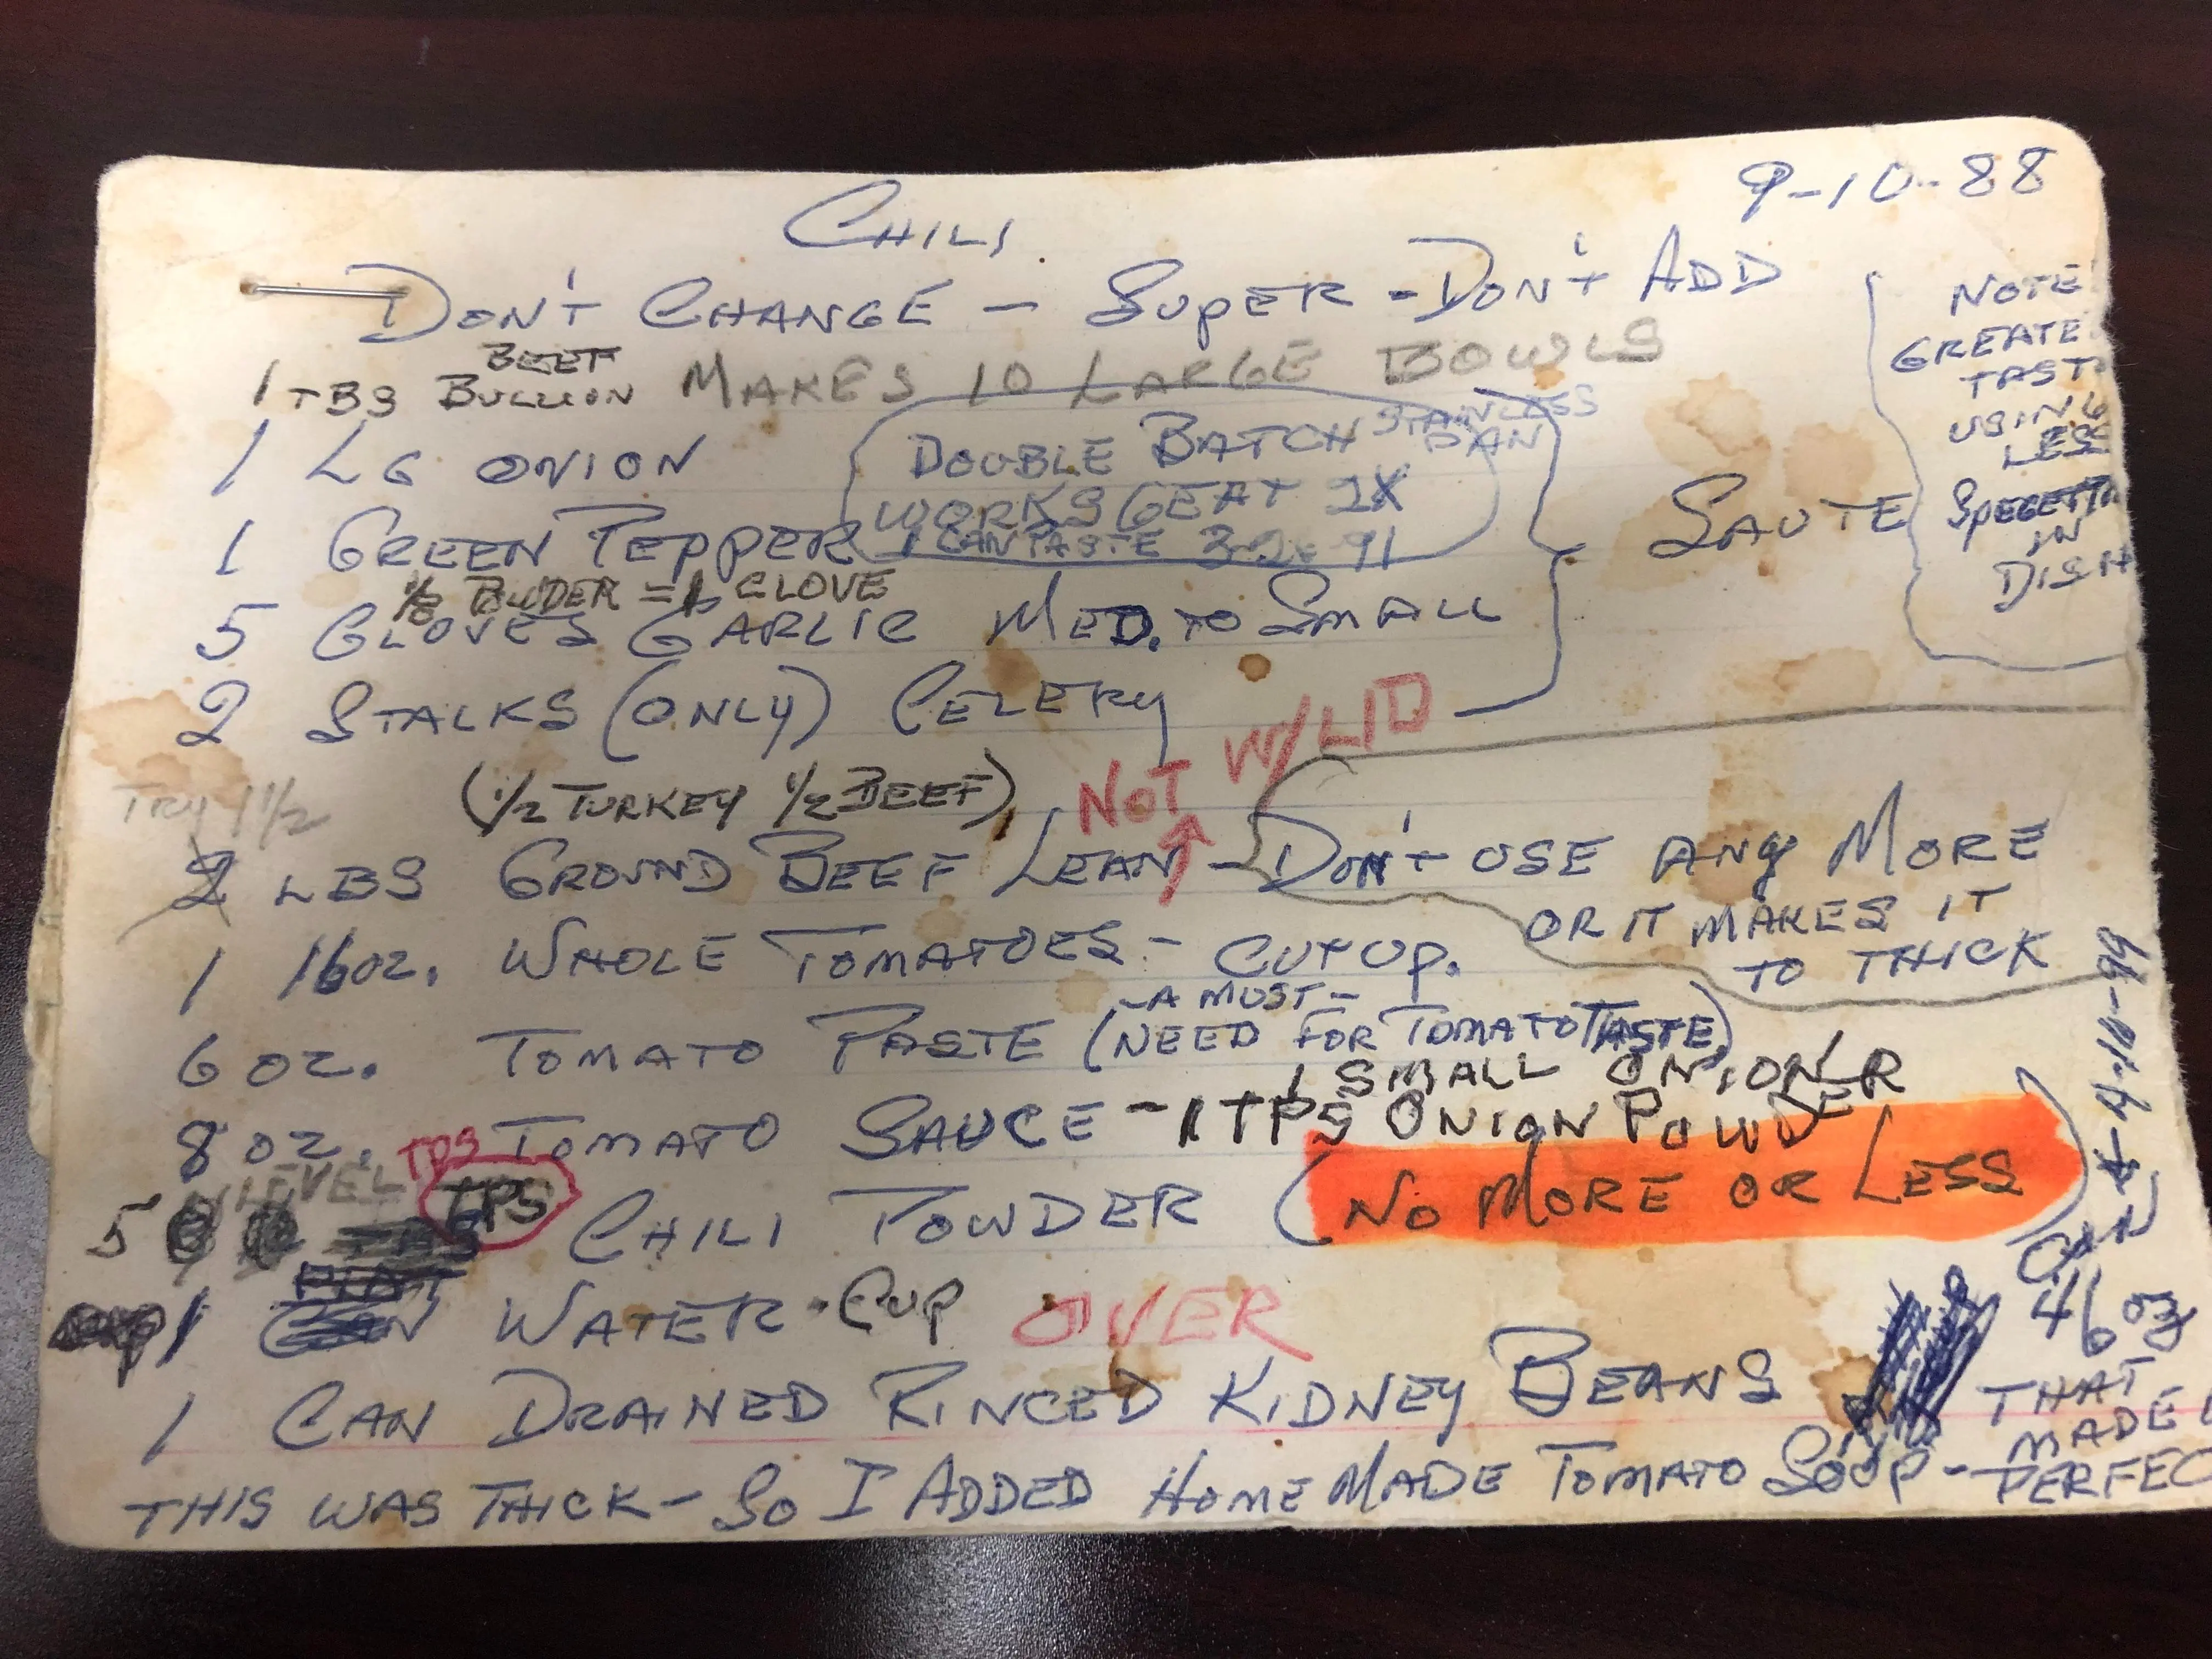 9-10-88
CHILI
DON'T CHANGE - SUPER - DON'T ADD
NOTE
GREATE
TAST
USING
LESS
SPEGETTI
IN
DISH
1 TBS BEEF BULLION
MAKES 10 LARGE BOWLS
1 LG ONION
DOUBLE BATCH STAINLESS PAN
WORKS GEAT 2X
1 CAN PASTE
SAUTE
1 GREEN PEPPER
POWDER = 1 CLOVE
5 CLOVES GARLIC MED. TO SMALL
2 STALKS (ONLY) CELERY
NOT W/LID
TRY 1 1/2
(1/2 TURKEY 1/2 BEEF)
2 LBS GROUND BEEF LEAN - DON'T USE ANY MORE
OR IT MAKES IT
TO THICK
1 16 OZ. WHOLE TOMATOES - CUT UP.
- A MUST -
6 OZ. TOMATO PASTE (NEED FOR TOMATO TASTE)
1 SMALL ONION OR
8 OZ. TOMATO SAUCE - 1 TPS ONION POWDER
LEVEL TPS
5 TPS CHILI POWDER (NO MORE OR LESS)
1 WATER - CUP OVER
1 CAN DRAINED RINCED KIDNEY BEANS
THIS WAS THICK - SO I ADDED HOME MADE TOMATO SOUP -
CAN
46 OZ
THAT
MADE
PERFEC